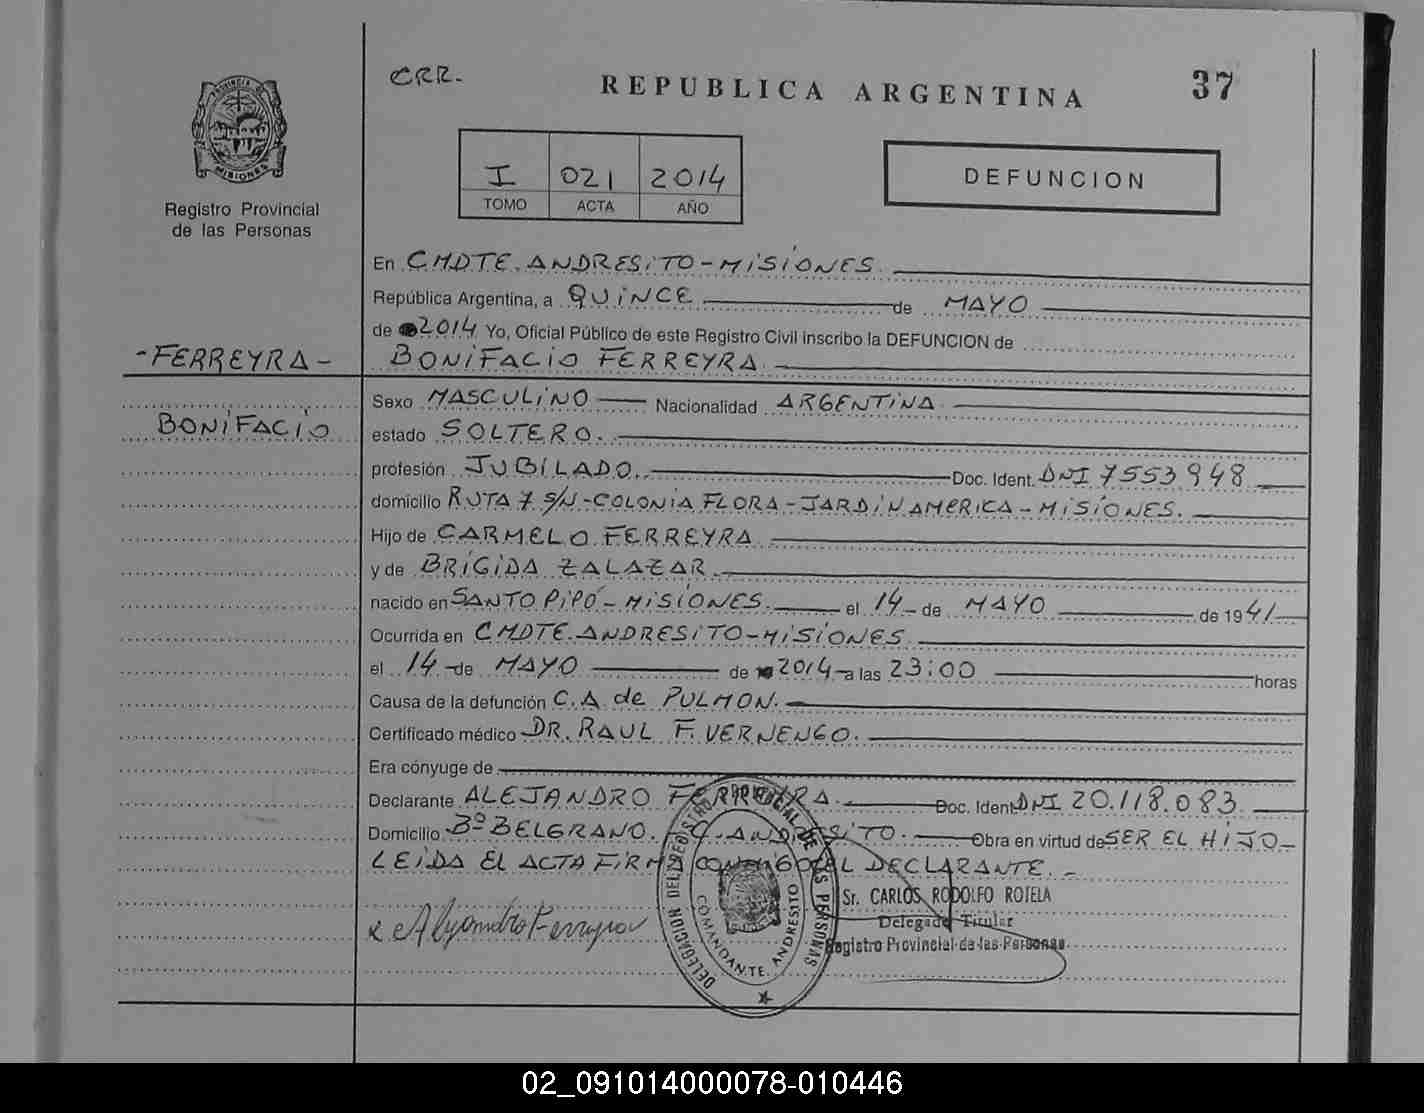 CRR.
REPUBLICA ARGENTINA
37
PROVINCIA DE
MISIONES
Registro Provincial
de las Personas
I 021 2014
TOMO ACTA AÑO
DEFUNCION
En CMDTE. ANDRESITO - MISIONES.
República Argentina, a QUINCE de MAYO
de 2014 Yo, Oficial Público de este Registro Civil inscribo la DEFUNCION de
-FERREYRA- BONIFACIO FERREYRA.
Sexo MASCULINO Nacionalidad ARGENTINA
BONIFACIO estado SOLTERO.
profesión JUBILADO. Doc. Ident. DNI 7553948
domicilio RUTA 7 S/N - COLONIA FLORA - JARDIN AMERICA - MISIONES.
Hijo de CARMELO FERREYRA
y de BRIGIDA ZALAZAR.
nacido en SANTO PIPÓ - MISIONES. el 14 - de MAYO de 1941
Ocurrida en CMDTE. ANDRESITO - MISIONES
el 14 - de MAYO de 2014 - a las 23:00 horas
Causa de la defunción C.A de PULMON.
Certificado médico DR. RAUL F. VERNENGO.
Era cónyuge de
Declarante ALEJANDRO FERREIRA. Doc. Ident. DNI 20.118.083
Domicilio Bº BELGRANO. C. ANDRESITO. Obra en virtud de SER EL HIJO -
LEIDA EL ACTA FIRMA CONMIGO EL DECLARANTE. -
Sr. CARLOS RODOLFO ROTELA
Delegado Titular
Registro Provincial de las Personas
x Alejandro Ferreyra
DELEGACION DEL REGISTRO PROVINCIAL DE LAS PERSONAS
COMANDANTE ANDRESITO
02_091014000078-010446